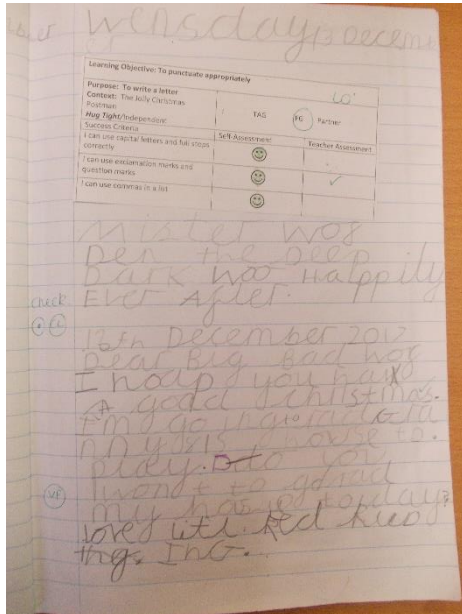 wensday 13 Decem
er
Learning Objective: To punctuate appropriately
Purpose: To write a letter
Context: The Jolly Christmas
Postman
Hug Tight/Independent
LO'
TAS
FG
Partner
Success Criteria
Self-Assessment
Teacher Assessment
I can use capital letters and full stops
correctly
I can use exclamation marks and
question marks
✓
I can use commas in a list
Mister wof
Den the Deep
Dark woo Happily
check
Ever After.
13th December 2017
Dear Big Bad wof
I hoap you hav
A good christmas.
I'm going to rad Gra
nnys is house to.
play. to you
VF
wont to go rad
my has is today?
love litl Red
thog. ING.